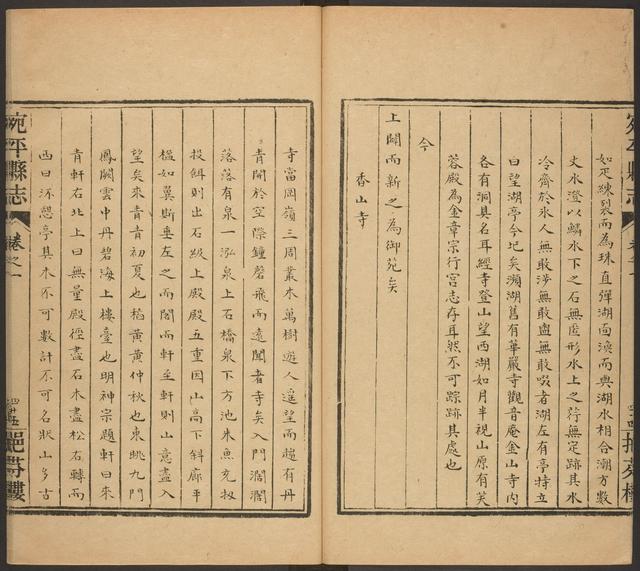 宛平縣志
如疋練裂而為珠直彈湖面渙而與湖水相合潮方數
丈水澄以鱗水下之石無匿形水上之荇無定跡其水
冷齊於氷人無敢涉無敢盥無敢啜者湖左有亭特立
曰望湖亭今圮矣瀕湖舊有華嚴寺觀音庵金山寺内
各有洞具名耳經寺登山望西湖如月半視山原有芙
蓉殿為金章宗行宫志存耳然不可踪跡其處也
今
上闢而新之為御苑矣
香山寺
寺當岡嶺三周叢木萬樹遊人遥望而趨有丹
青開於空際鐘磬飛而遠聞者寺矣入門濶濶
落落有泉一泓泉上石橋橋下方池朱魚充牣
投餌則出石級上殿殿五重因山高下斜廊平
楹如翼斯垂左之而閣而軒至軒則山意盡入
望矣來青青初夏也稻黄黄仲秋也東眺九門
鳳闕雲中丹碧海上樓臺也明神宗題軒曰來
青軒右北上曰無量殿徑盡石木盡松右轉而
西曰流憩亭其木不可數計不可名狀山多古
宛平縣志
卷之一